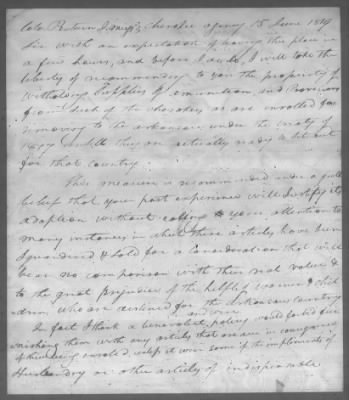 Colo. Return J. Meigs, Cherokee agency 15 June 1819
Sir With an expectation of leaving this place in
a few hours, and before I depart, I will take the
liberty of recommending to you the propriety of
witholding Supplies of Ammunition, and Provisions
from such of the cherokees as are enrolled for
removing to the arkansas under the treaty of
1817 untill they are actually ready to set out
for that country.
This measure is recommended under a full
belief that your past experience will justify its
adoption without calling to your attention to
many instances in which these articles have been
squandered & sold for a consideration that will
bear no comparison with their real value &
to the great prejudice of the helpless women & chil
dren, who are destined for the arkansas country
In fact I think a benevolent policy would forbid fur
nishing them with any articles that are in consequence
of their being enrolled, unless it were some of the implements of
Husbandry or other articles of indispensable